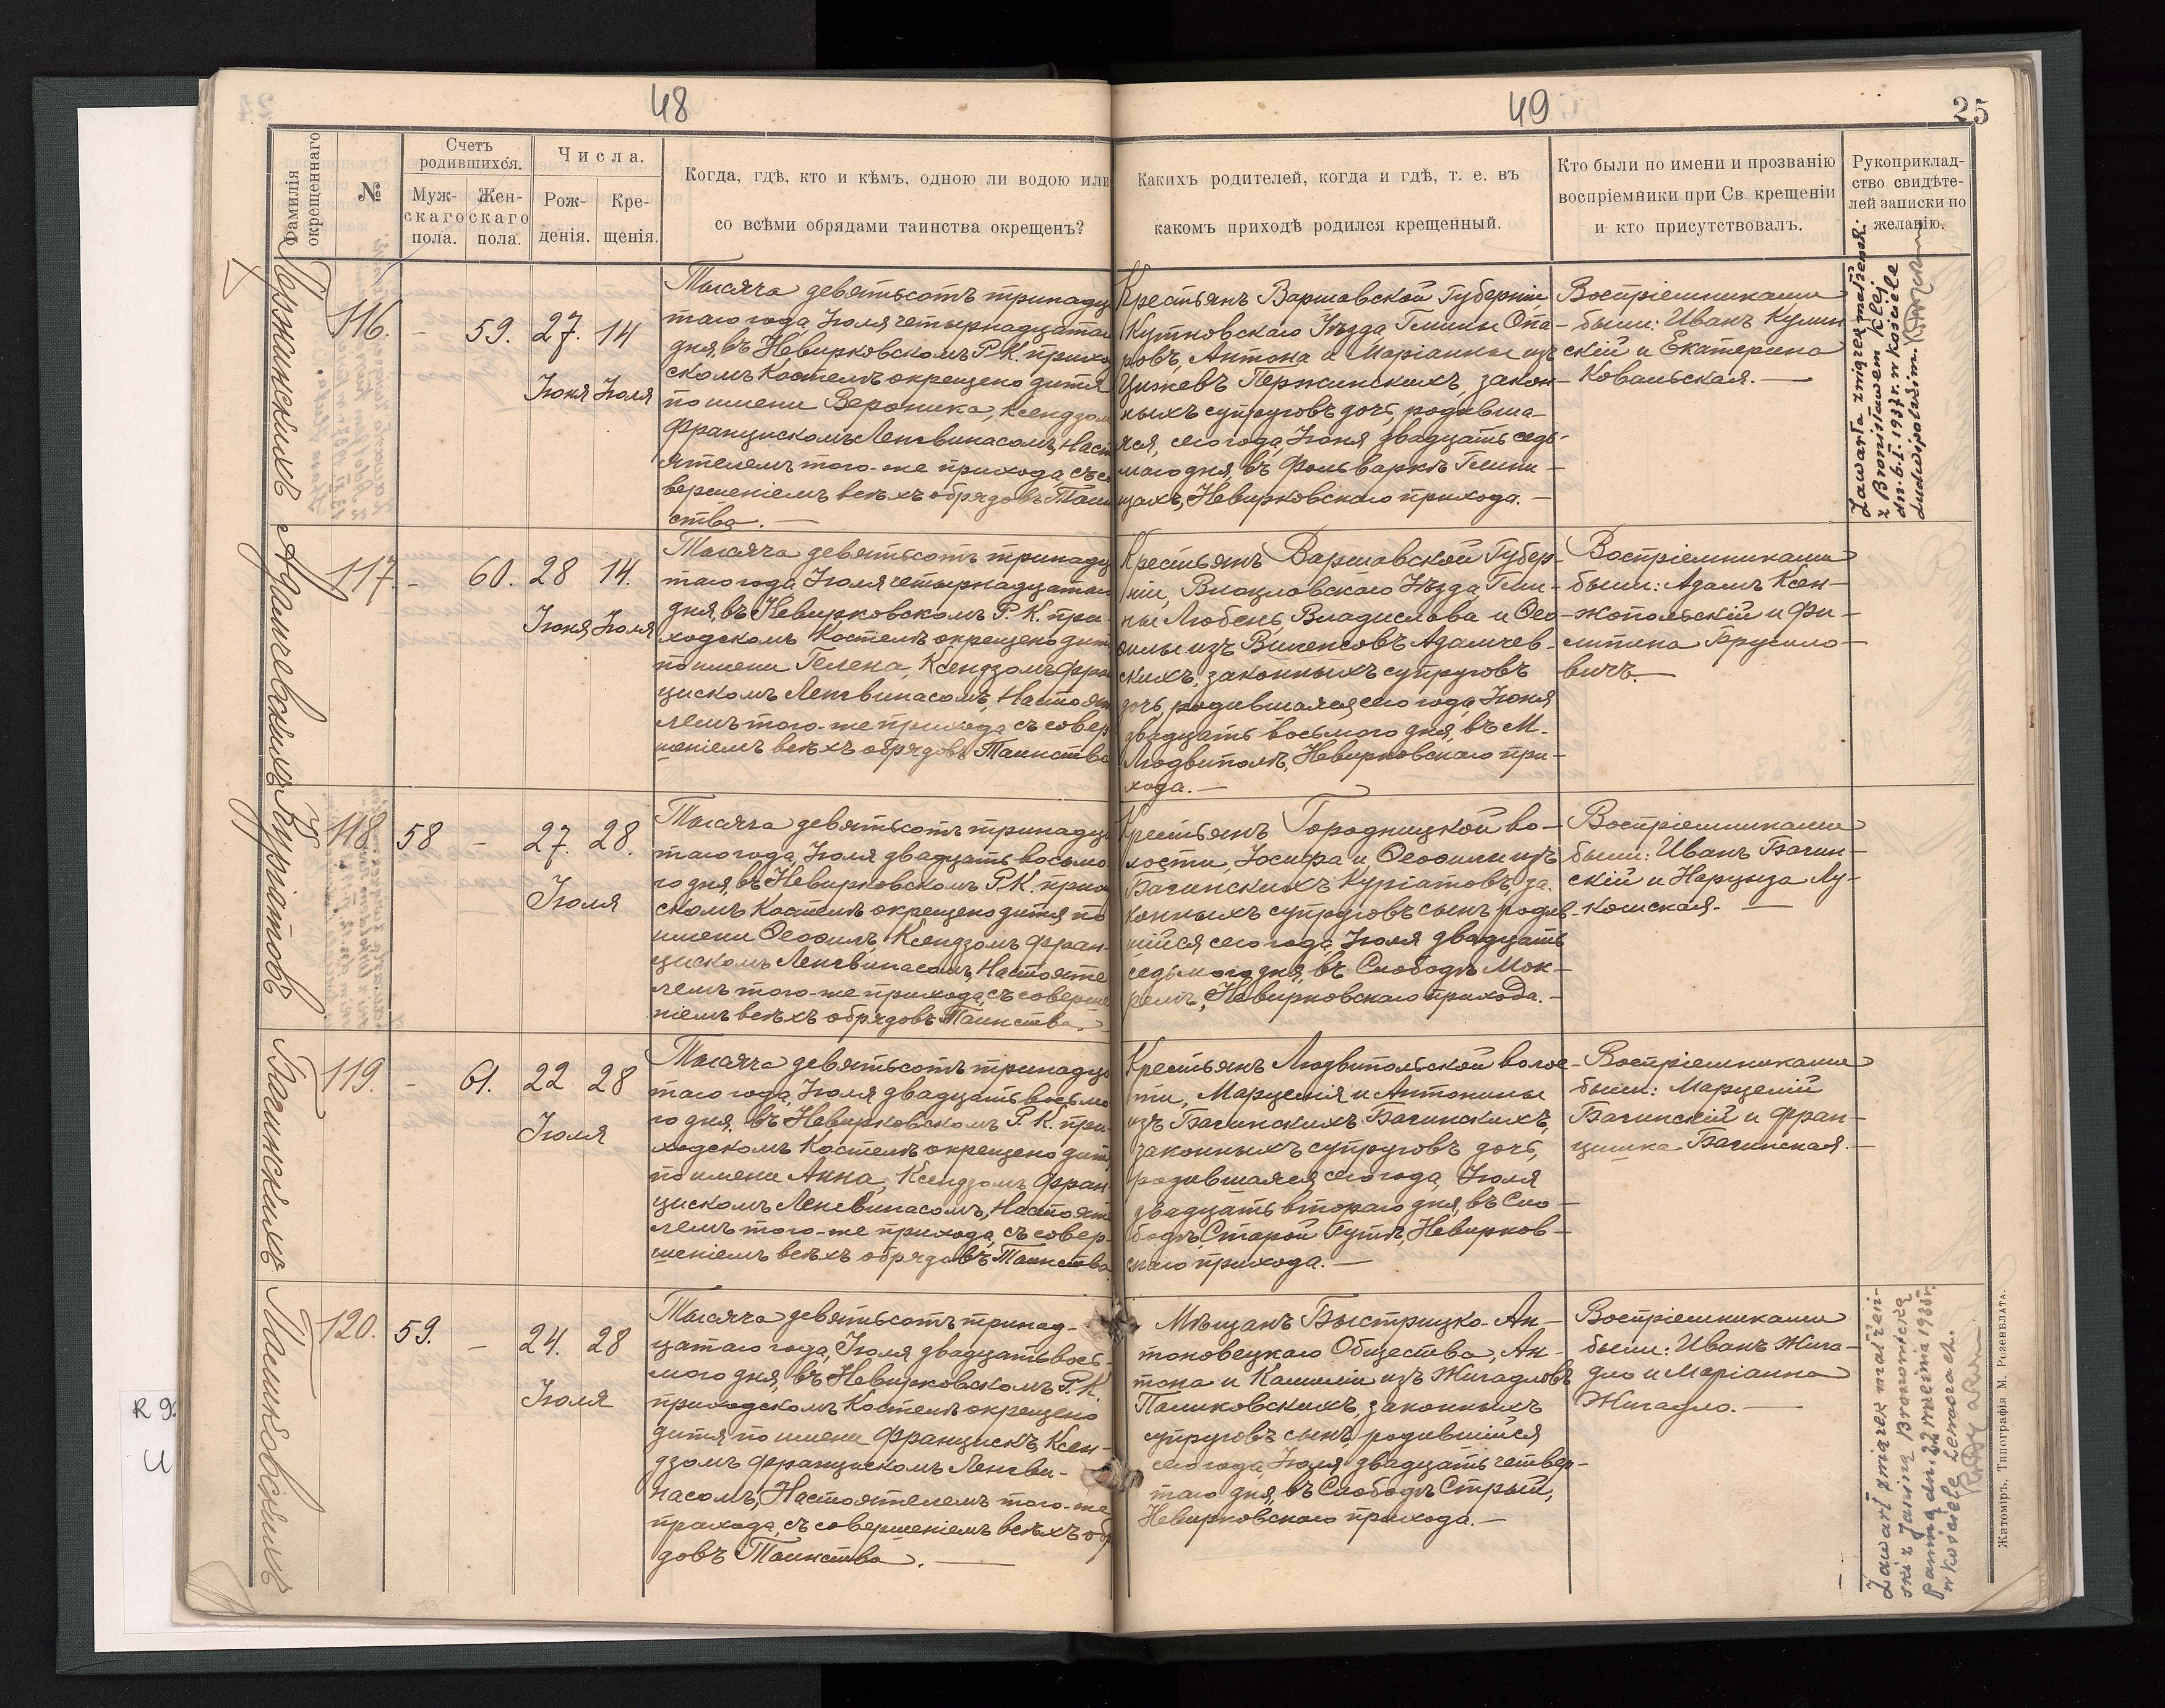 48
49
25
Фамилія окрещеннаго
№
Счетъ родившихся.
Муж-скаго пола.
Жен-скаго пола.
Числа.
Рож-денія.
Кре-щенія.
Когда, гдѣ, кто и кѣмъ, одною ли водою или
со всѣми обрядами таинства окрещенъ?
Какихъ родителей, когда и гдѣ, т. е. въ
какомъ приходѣ родился крещенный.
Кто были по имени и прозванію
воспріемники при Св. крещеніи
и кто присутствовалъ.
Рукоприклад-
ство свидѣте-
лей записки по
желанію.
116.
-
59.
27. 14
Іюня Іюля
Тысяча девятьсотъ тринадца
таго года, Іюля четырнадцатаго
дня, въ Невирковскомъ Р. К. приход
скомъ Костелѣ окрещено дитя
по имени Вероника, Ксендзом
Францискомъ Ленгвинасомъ, Наст
ятелемъ того-же прихода, съ со
вершеніемъ всѣхъ обрядовъ Таин
ства. —
Крестьянъ Варшавской Губерніи
Кутновскаго Уѣзда Гмины Опо-
ровъ, Антона и Маріанны изъ
законныхъ супруговъ дочь, родивша-
яся, сего года, Іюня двадцать седь-
маго дня, въ Фольваркѣ Глини-
щахъ, Невирковскаго прихода. —
Воспріемниками
были: Иванъ Кулин
скій и Екатерина
Ковальская. —
Zawarła związek małżeński
z Bronisławem Klej
dn. 6.I.1937 r. w kościele
Ludwipolskim.
Адамчевскихъ
117.
-
60.
28 14.
Іюня Іюля
Тысяча девятьсотъ тринадца
таго года, Іюля четырнадцатаго
дня, въ Невирковскомъ Р. К. при-
ходскомъ Костелѣ окрещено дитя
по имени Гелена, Ксендзомъ Фран
цискомъ Ленгвинасомъ, Настояте
лемъ того-же прихода съ совер
шеніемъ всѣхъ обрядовъ Таинства
Крестьянъ Варшавской Губер-
ніи, Влоцлавскаго Уѣзда, Гми-
ны Любень, Владислава и Өео-
филы изъ Адамчев-
скихъ, законныхъ супруговъ
дочь, родившаяся, сего года, Іюня
двадцать восьмого дня, въ М.
Людвиполѣ, Невирковскаго при-
хода. —
Воспріемниками
были: Адамъ Ксен-
жопольскій и Фи-
липина Брусило-
вичъ. —
Куріатовъ
118.
58
-
27. 28.
Іюля
Тысяча девятьсотъ тринадца
таго года, Іюля двадцать восьмо
го дня, въ Невирковскомъ Р. К. приход
скомъ Костелѣ окрещено дитя по
имени Өеофилъ, Ксендзомъ Фран-
цискомъ Ленгвинасомъ, Настояте
лемъ того-же прихода, съ соверше
ніемъ всѣхъ обрядовъ Таинства.
Крестьянъ Городницкой во-
лости, Іосифа и Өеофили изъ
Багинскихъ Куріатовъ, за-
конныхъ супруговъ сынъ, родив-
шійся сего года, Іюля двадцать
седьмого дня, въ Слободѣ Мок-
ремъ, Невирковскаго прихода. —
Воспріемниками
были: Иванъ Багин-
скій и Нарциза Лу-
комская. —
Багинскихъ
119.
-
61.
22 28
Іюля
Тысяча девятьсотъ тринадца
таго года, Іюля двадцать восьмо
го дня, въ Невирковскомъ Р. К. при-
ходскомъ Костелѣ окрещено дитя
по имени Анна, Ксендзомъ Фран-
цискомъ Ленгвинасомъ, Настояте
лемъ того-же прихода, съ совер-
шеніемъ всѣхъ обрядовъ Таинства
Крестьянъ Людвипольской волос-
ти, Марцелія и Антонины
изъ Багинскихъ Багинскихъ,
законныхъ супруговъ дочь,
родившаяся сего года, Іюля
двадцать втораго дня, въ Сло-
бодѣ Старой Гутѣ, Невирков-
скаго прихода. —
Воспріемниками
были: Марцелій
Багинскій и Фран-
цишка Багинская. —
120.
59.
-
24. 28
Іюля
Тысяча девятьсотъ тринад-
цатаго года, Іюля двадцать вось-
мого дня, въ Невирковскомъ Р. К.
приходскомъ Костелѣ окрещено
дитя по имени Францискъ, Ксен-
дзомъ Францискомъ Ленгви-
насомъ, Настоятелемъ того-же
прихода, съ совершеніемъ всѣхъ обр
довъ Таинства. —
Мѣщанъ Быстрицко-Ан-
тоновецкаго Общества, Ан-
тона и Камиліи изъ Жигадловъ
законныхъ
супруговъ сынъ, родившійся
сего года, Іюля двадцать четвер-
таго дня, въ Слободѣ Стрый,
Невирковскаго прихода. —
Воспріемниками
были: Иванъ Жига-
дло и Маріанна
Жигадло. —
Zawarł związek małżeń-
ski z Janiną Bronowicką
panną dn. 22 września 1935 r.
w kościele Lenczach.
Житоміръ. Типографія М. Розенблата.
R 9
U